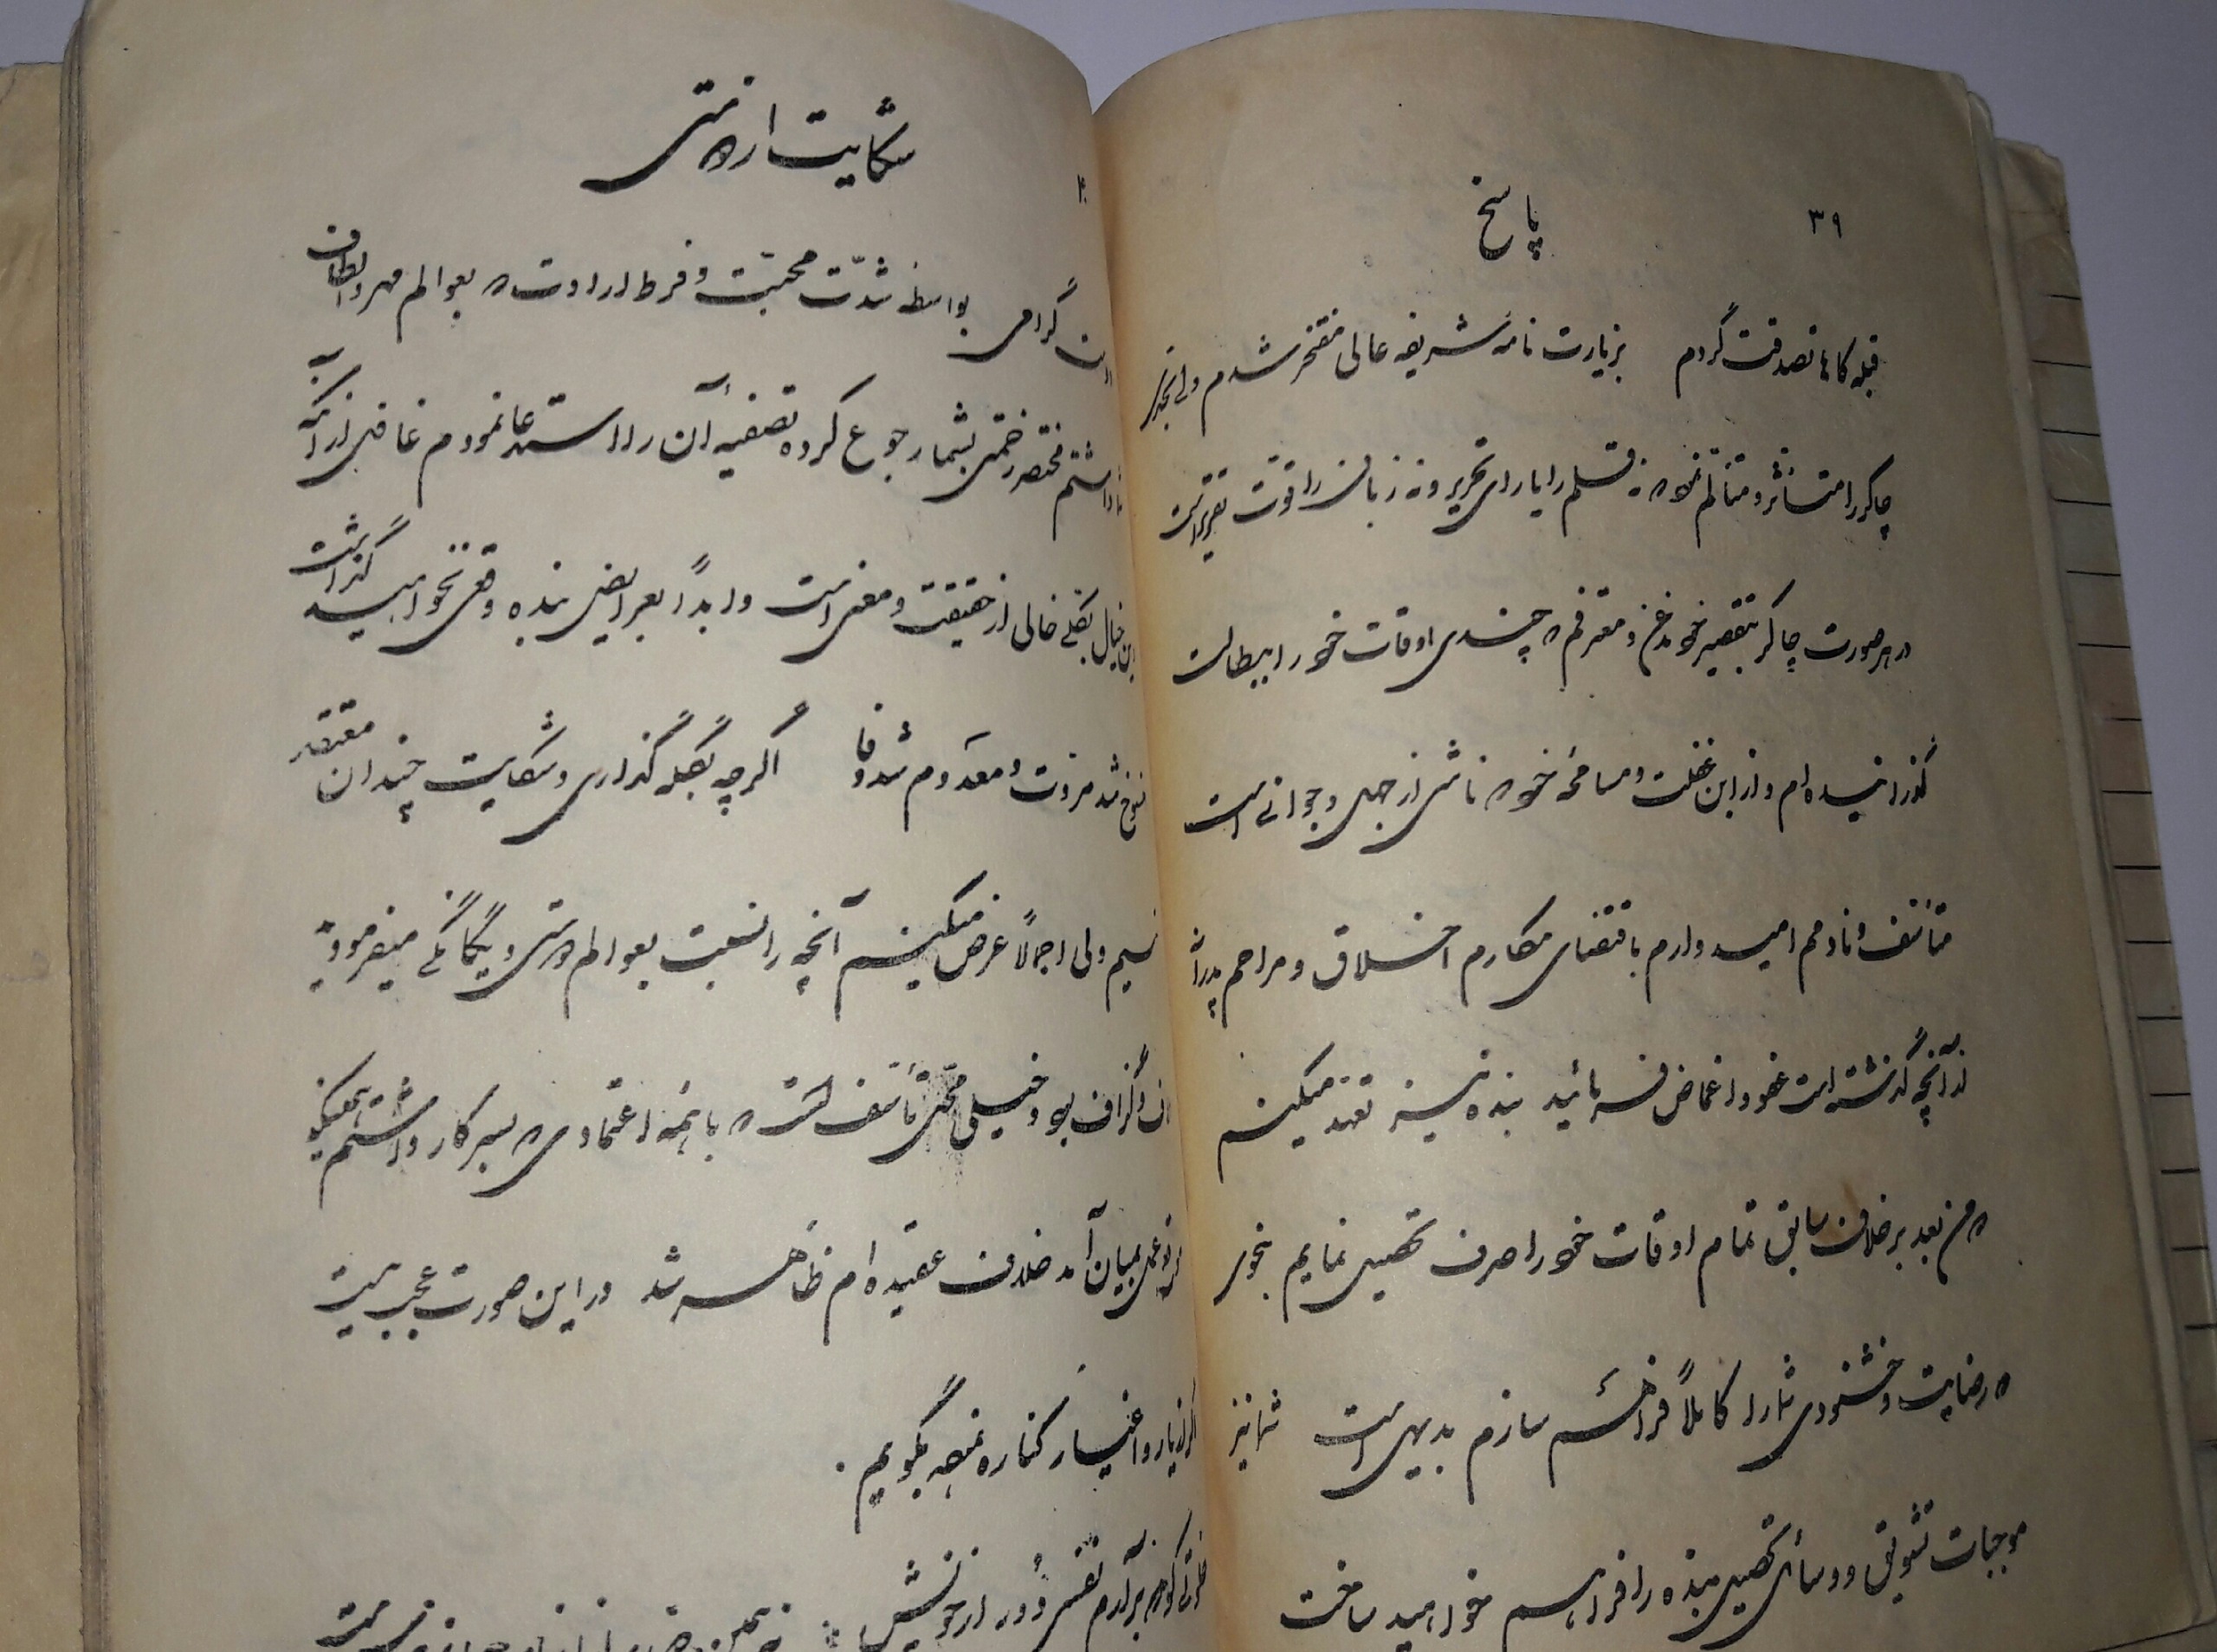 ۳۹
پاسخ
قبله گاها تصدقت گردم بزیارت نامهٔ شریفه عالی مفتخر شدم ولی بقدری
چاکر را متأثر و متألم نمود که نه قلم را یارای تحریر و نه زبان را قوت تقریر است
در هر صورت چاکر بتقصیر خود مذعن و معترفم که چندی اوقات خود را ببطالت
گذرانیده ام و از این غفلت و مسامحهٔ خود که ناشی از جهل و جوانی است
متأسف و نادمم امیدوارم باقتضای مکارم اخلاق و مراحم پدرانه
از آنچه گذشته است عفو و اغماض فرمائید بنده نیز تعهد میکنم
که من بعد بر خلاف سابق تمام اوقات خود را صرف تحصیل نمایم بنحوی
که رضایت و خشنودی شما را کاملاً فراهم سازم بدیهی است شما نیز
موجبات تشویق و وسائل تحصیل بنده را فراهم خواهید ساخت
شکایت از دوستی
گرامی بواسطه شدّت محبّت و فرط ارادت که بعوالم مهر و الطاف
داشتم مختصر زحمتی بشما رجوع کرده تصفیه آن را استدعا نمودم غافل از آنکه
این خیال بکلی خالی از حقیقت و معنی است و ابداً بعرایض بنده وقعی نخواهید گذاشت
شد مروّت و معدوم شد وفا اگر چه بگله گذاری و شکایت چندان معتقد
نیستم ولی اجمالاً عرض میکنم آنچه را نسبت بعوالم دوستی و یگانگی میفرمودید
و گزاف بود و خیلی محل تأسف است که با همه اعتمادی که بسرکار داشتم همینکه
بمیان آمد خلاف عقیده ام ظاهر شد در این صورت عجب نیست
اگر از یار و اغیار کناره نموده بگویم .
برآرم نفسی دور از خویش